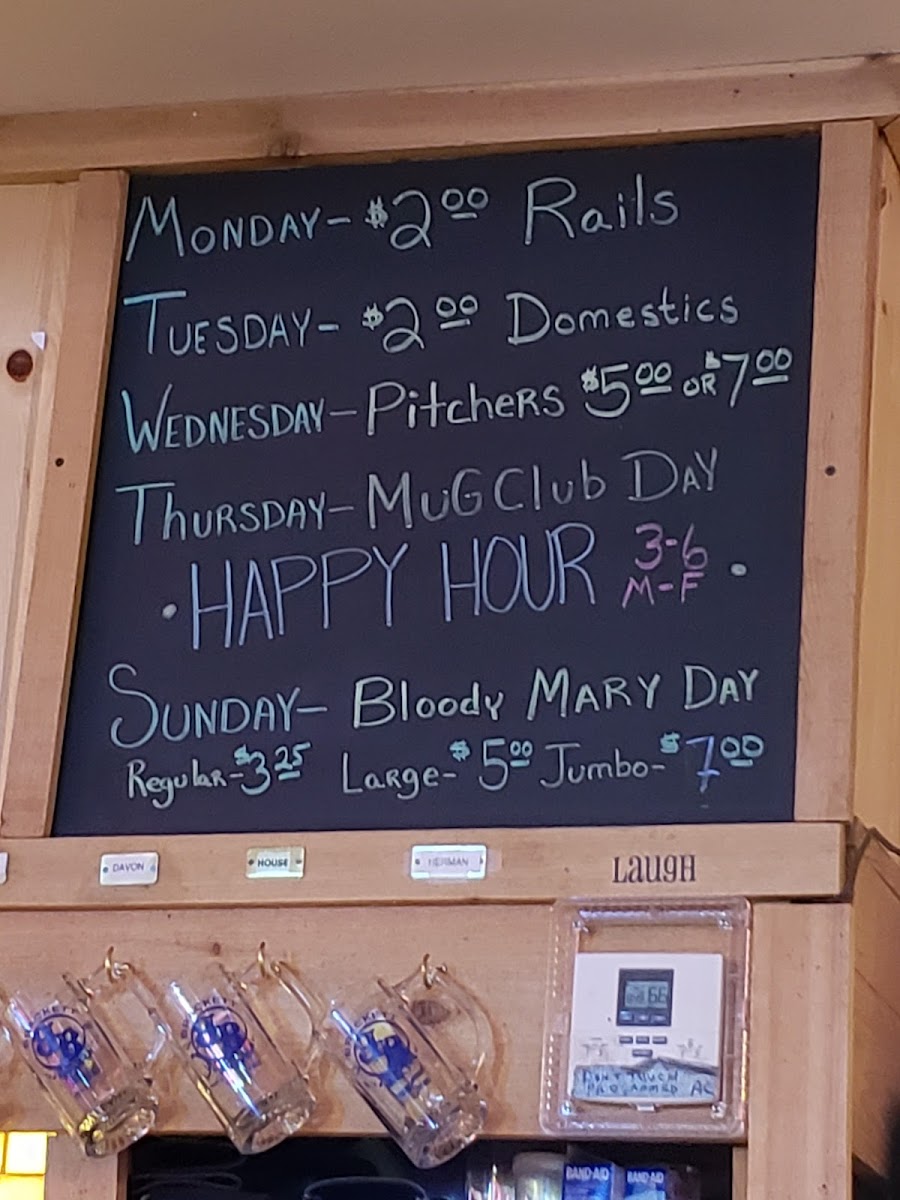 MONDAY- $2.00 Rails
TUESDAY- $2.00 Domestics
WEDNESDAY- Pitchers $5.00 OR $7.00
THURSDAY- MUG Club DAY
• HAPPY HOUR 3-6 M-F •
SUNDAY- Bloody MARY DAY
Regular- $3.25 Large- $5.00 Jumbo- $7.00
DAVON
HOUSE
HERMAN
LAUGH
66
DON'T TOUCH
PROGRAMMED AC
BAND-AID
BAND-AID